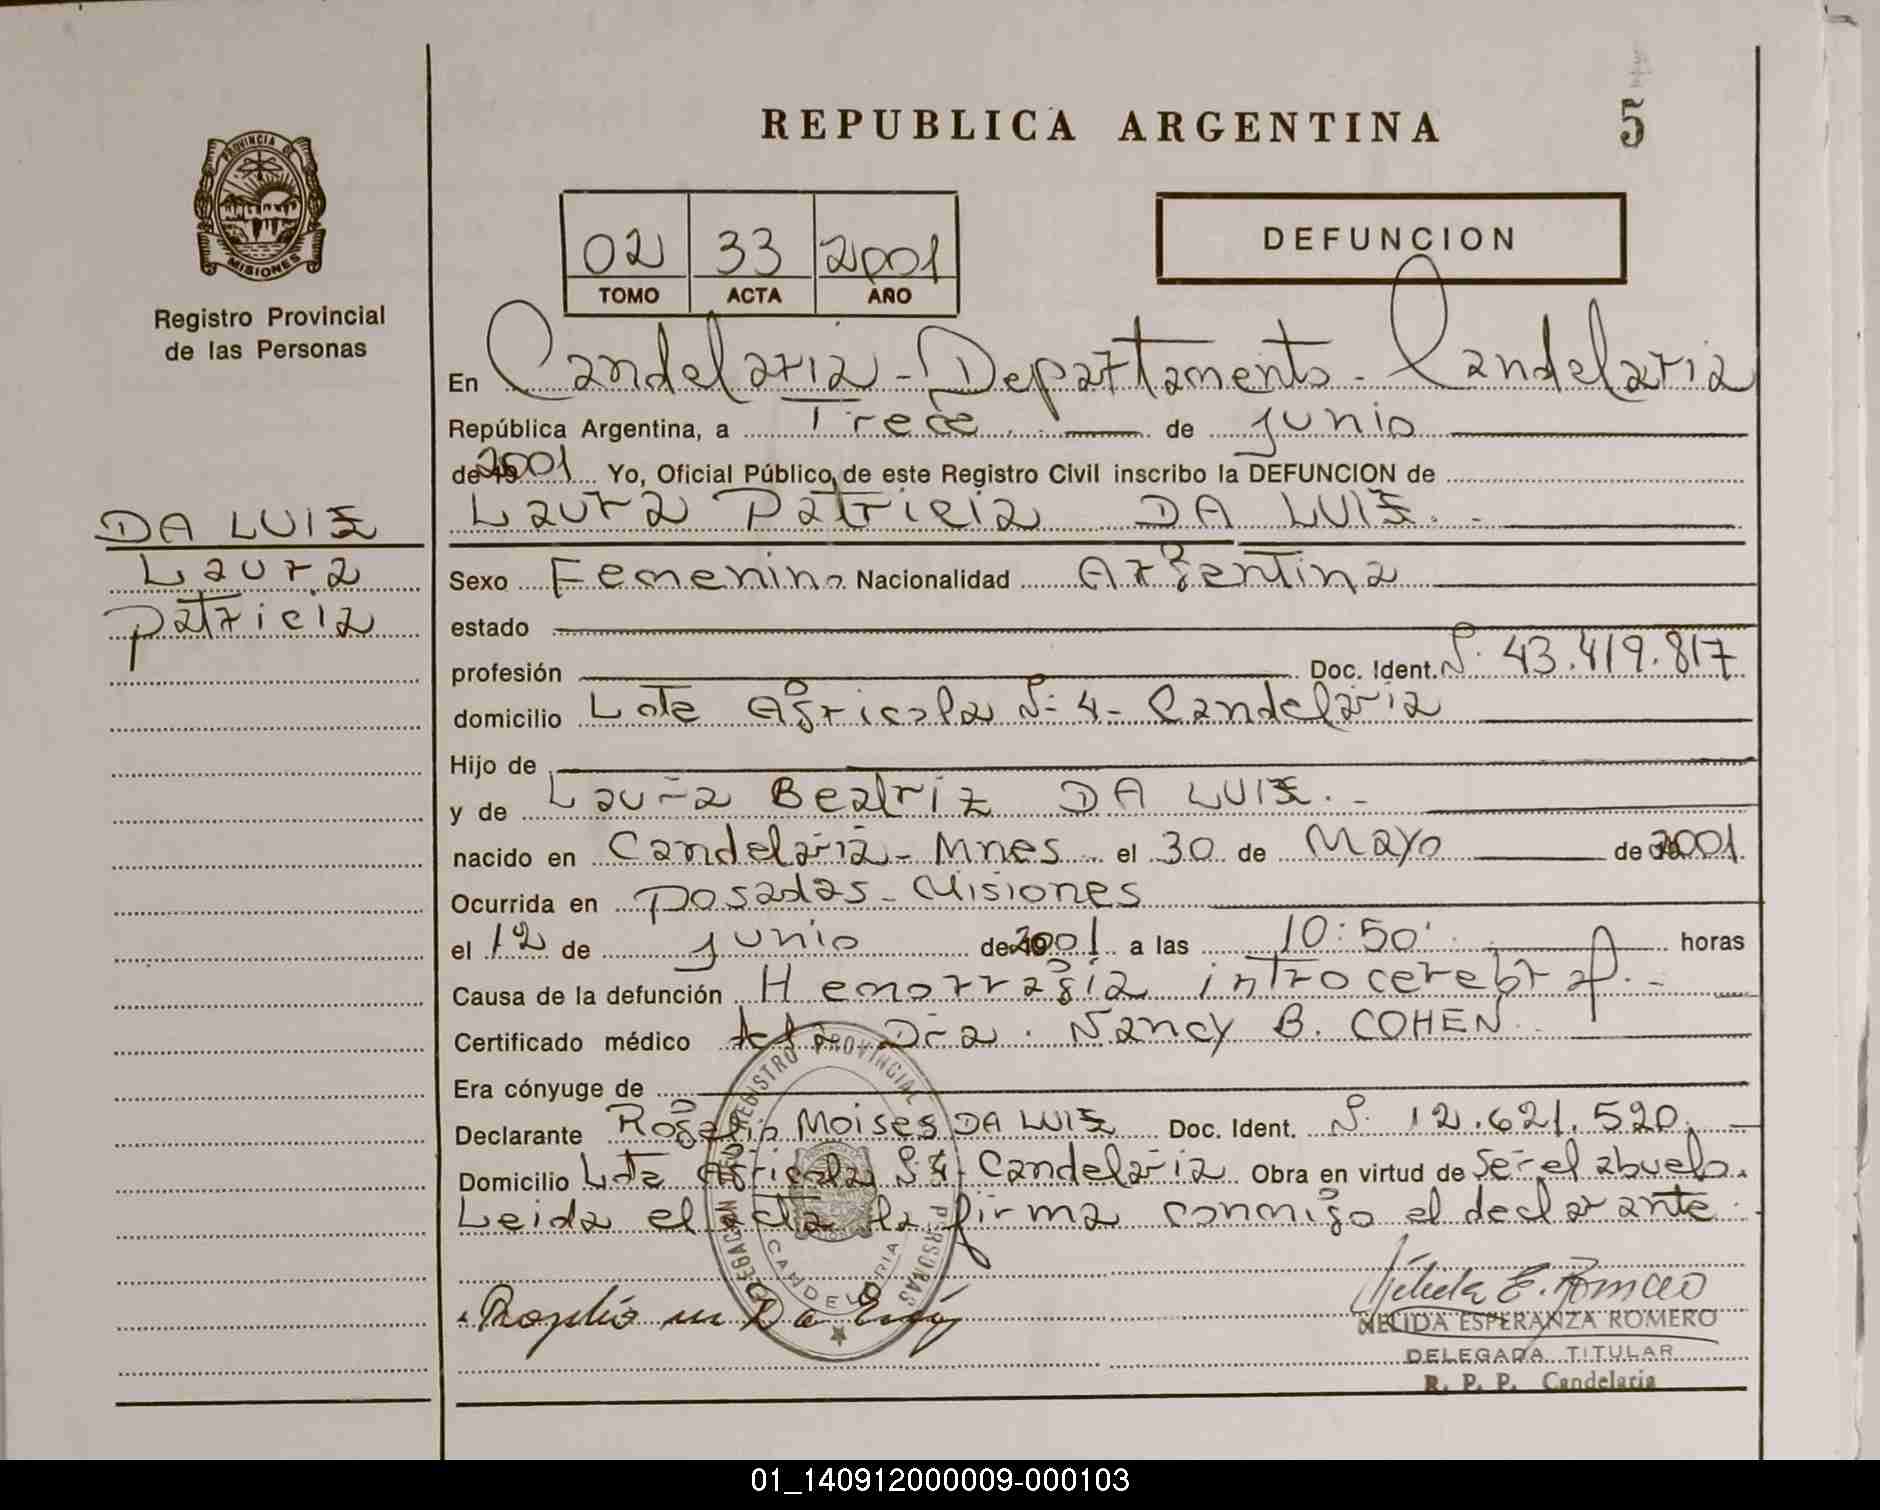 REPUBLICA ARGENTINA
5
PROVINCIA DE
MISIONES
Registro Provincial
de las Personas
02 33 2001
TOMO ACTA AÑO
DEFUNCION
En Candelaria - Departamento - Candelaria
República Argentina, a Trece de junio
de 2001 Yo, Oficial Público de este Registro Civil inscribo la DEFUNCION de
Laura Patricia DA LUIZ. -
DA LUIZ
Laura
Patricia
Sexo Femenino Nacionalidad Argentina
estado
profesión Doc. Ident. Nº 43.419.817
domicilio Lote Agricola Nº 4 - Candelaria
Hijo de
y de Laura Beatriz DA LUIZ. -
nacido en Candelaria - Mnes el 30 de Mayo de 2001.
Ocurrida en Posadas - Misiones
el 12 de junio de 2001 a las 10:50' horas
Causa de la defunción Hemorragia introcerebral. -
Certificado médico Dra. Nancy B. COHEN
Era cónyuge de
Declarante Rogelio Moises DA LUIZ Doc. Ident. Nº 12.621.520.
Domicilio Lote Agricola Nº 4 - Candelaria Obra en virtud de ser el abuelo.
Leida el acta la firma conmigo el declarante.
REGISTRO PROVINCIAL PERSONAS
DELEGACION
CANDELARIA
Nélida E. Romero
NELIDA ESPERANZA ROMERO
DELEGADA TITULAR
R. P. P. Candelaria
01_140912000009-000103